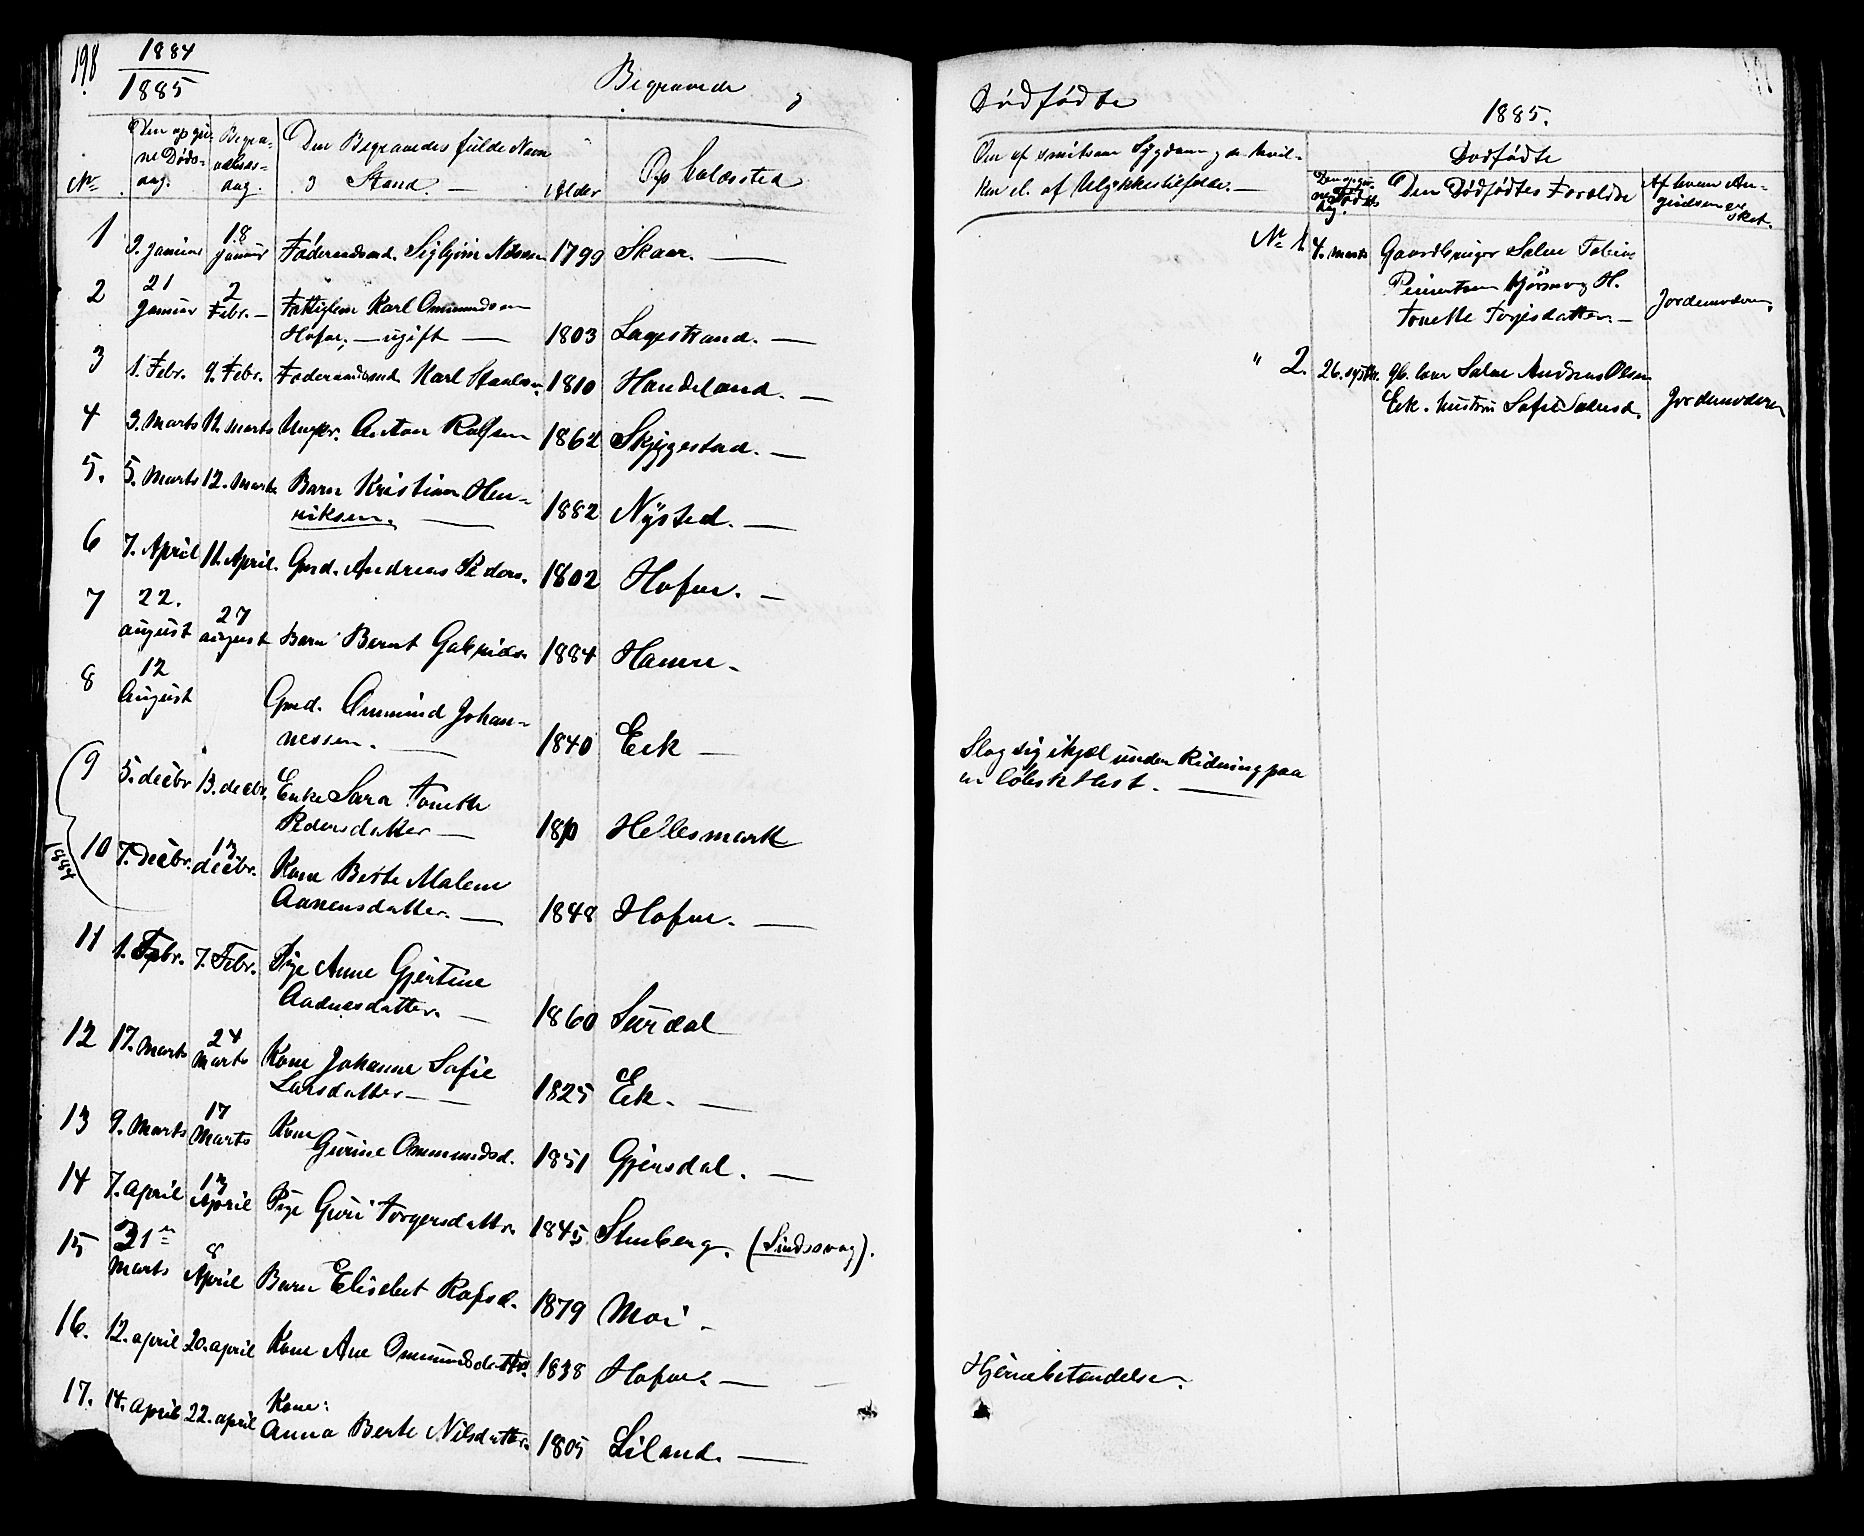 198 1884
1885
Begravede og
No. Den opgivne Dødsdag. Begravelsesdag. Den Begravedes fulde Navn og Stand. Alder Opholdssted
1 9. Januar 18 Januar Føderaadsmd. Sigbjørn Nilsen 1799 Skaar.
2 21 Januar 2 Febr. Fattiglem Karl Ommundsen
Hofor, ugift 1803 Lagestrand.
3 1. Febr. 9. Febr. Føderaadsmd. Karl Staalesen 1810 Handeland.
4 3. Marts 11. Marts Ungkr. Anton Rolfsen 1862 Skjeggestad.
5. 5. Marts 12. Marts Barn Kristian Hen-
riksen. 1882 Nysted.
6 7. April 11. April. Gmd. Andreas Peders. 1802 Hofor.
7 22. august 27 august Barn Bernt Gabriels. 1884 Hamre
8 12 August Gmd. Ommund Johan-
nessen. 1840 Eek
9 5. decbr 13. decbr. Enke Sara Tonette
Pedersdatter 1810 Hellesmark
10 7. decbr. 13 decbr. Kone Berte Malene
Aanensdatter. 1848 Hofor.
1884
11 1. Febr. 7. Febr. Pige Anne Gjertine
Aadnesdatter. 1860 Surdal
12 17. Marts 24 Marts Kone Johanne Sofie
Larsdatter 1825 Eek.
13 9. Marts 17 Marts Kone
Gurine Ommundsd. 1851 Gjersdal.
14 7. april 13 April Pige Guri Torgersdattr. 1845 Stenberg. (Sindssvag).
15 21 Marts 8 April Barn Elisebet Rolfsd. 1879 Moi
16. 12. april 20. april Kone Ane Ommundsdatter. 1838 Hofor.
17. 14. april 22. april Kone:
Anna Berte Nilsdatter. 1805 Liland.
Dødfødte
1885.
Om af smitsom Sygdom og da hvil-
ken el. af Ulykkestilfælde.
Dødfødte
Den opgivne Dødsdag. Den Dødfødtes Forældre Af hvem Angivelsen er sket.
No. 1. 4. Marts Gaardbruger Salve Tobias
H.
Tonette Terjesdatter. Jordemoderen.
" 2. 26. Gb. Andreas Olsen
Eek. Hustru Sofie Jordemoderen
Slog sig ihjel under Ridning paa
en løbsk Hest.
Hjernebetændelse.